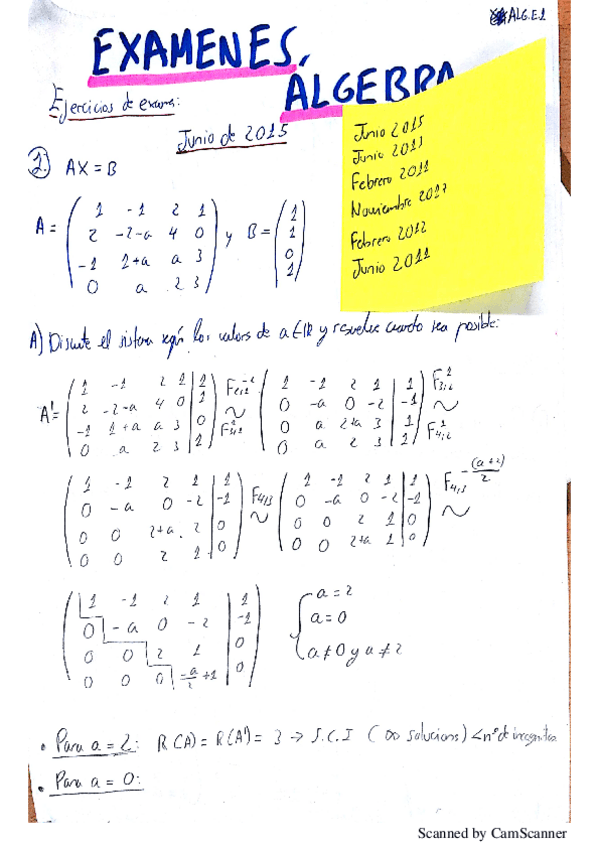 ALG.E1
EXAMENES,
ÁLGEBRA
Ejercicios de examen:
Junio de 2015
Junio 2015
Junio 2013
Febrero 2011
Noviembre 2017
Febrero 2012
Junio 2011
1.) AX = B
A = ( 1 -1 2 1
2 -2-a 4 0
-1 1+a a 3
0 a 2 3 ) y B = ( 1
1
0
1 )
A) Discute el sistema según los valores de a∈ℝ y resuelve cuando sea posible:
A' = ( 1 -1 2 1 | 1
2 -2-a 4 0 | 1
-1 1+a a 3 | 0
0 a 2 3 | 1 ) ~ ( 1 -1 2 1 | 1
0 -a 0 -2 | -1
0 a 2+a 3 | 1
0 a 2 3 | 1 ) ~
( 1 -1 2 1 | 1
0 -a 0 -2 | -1
0 0 2+a 2 | 0
0 0 2 1 | 0 ) F4,3 ~ ( 1 -1 2 1 | 1
0 -a 0 -2 | -1
0 0 2 1 | 0
0 0 2+a 1 | 0 ) F4,3 -(a+2)/2 ~
( 1 -1 2 1 | 1
0 -a 0 -2 | -1
0 0 2 1 | 0
0 0 0 -a/2+1 | 0 )
{ a = 2
a = 0
a ≠ 0 y a ≠ 2
• Para a = 2: R(A) = R(A') = 3 → S.C.I (∞ solucions) < nº d incognitas
• Para a = 0:
Scanned by CamScanner